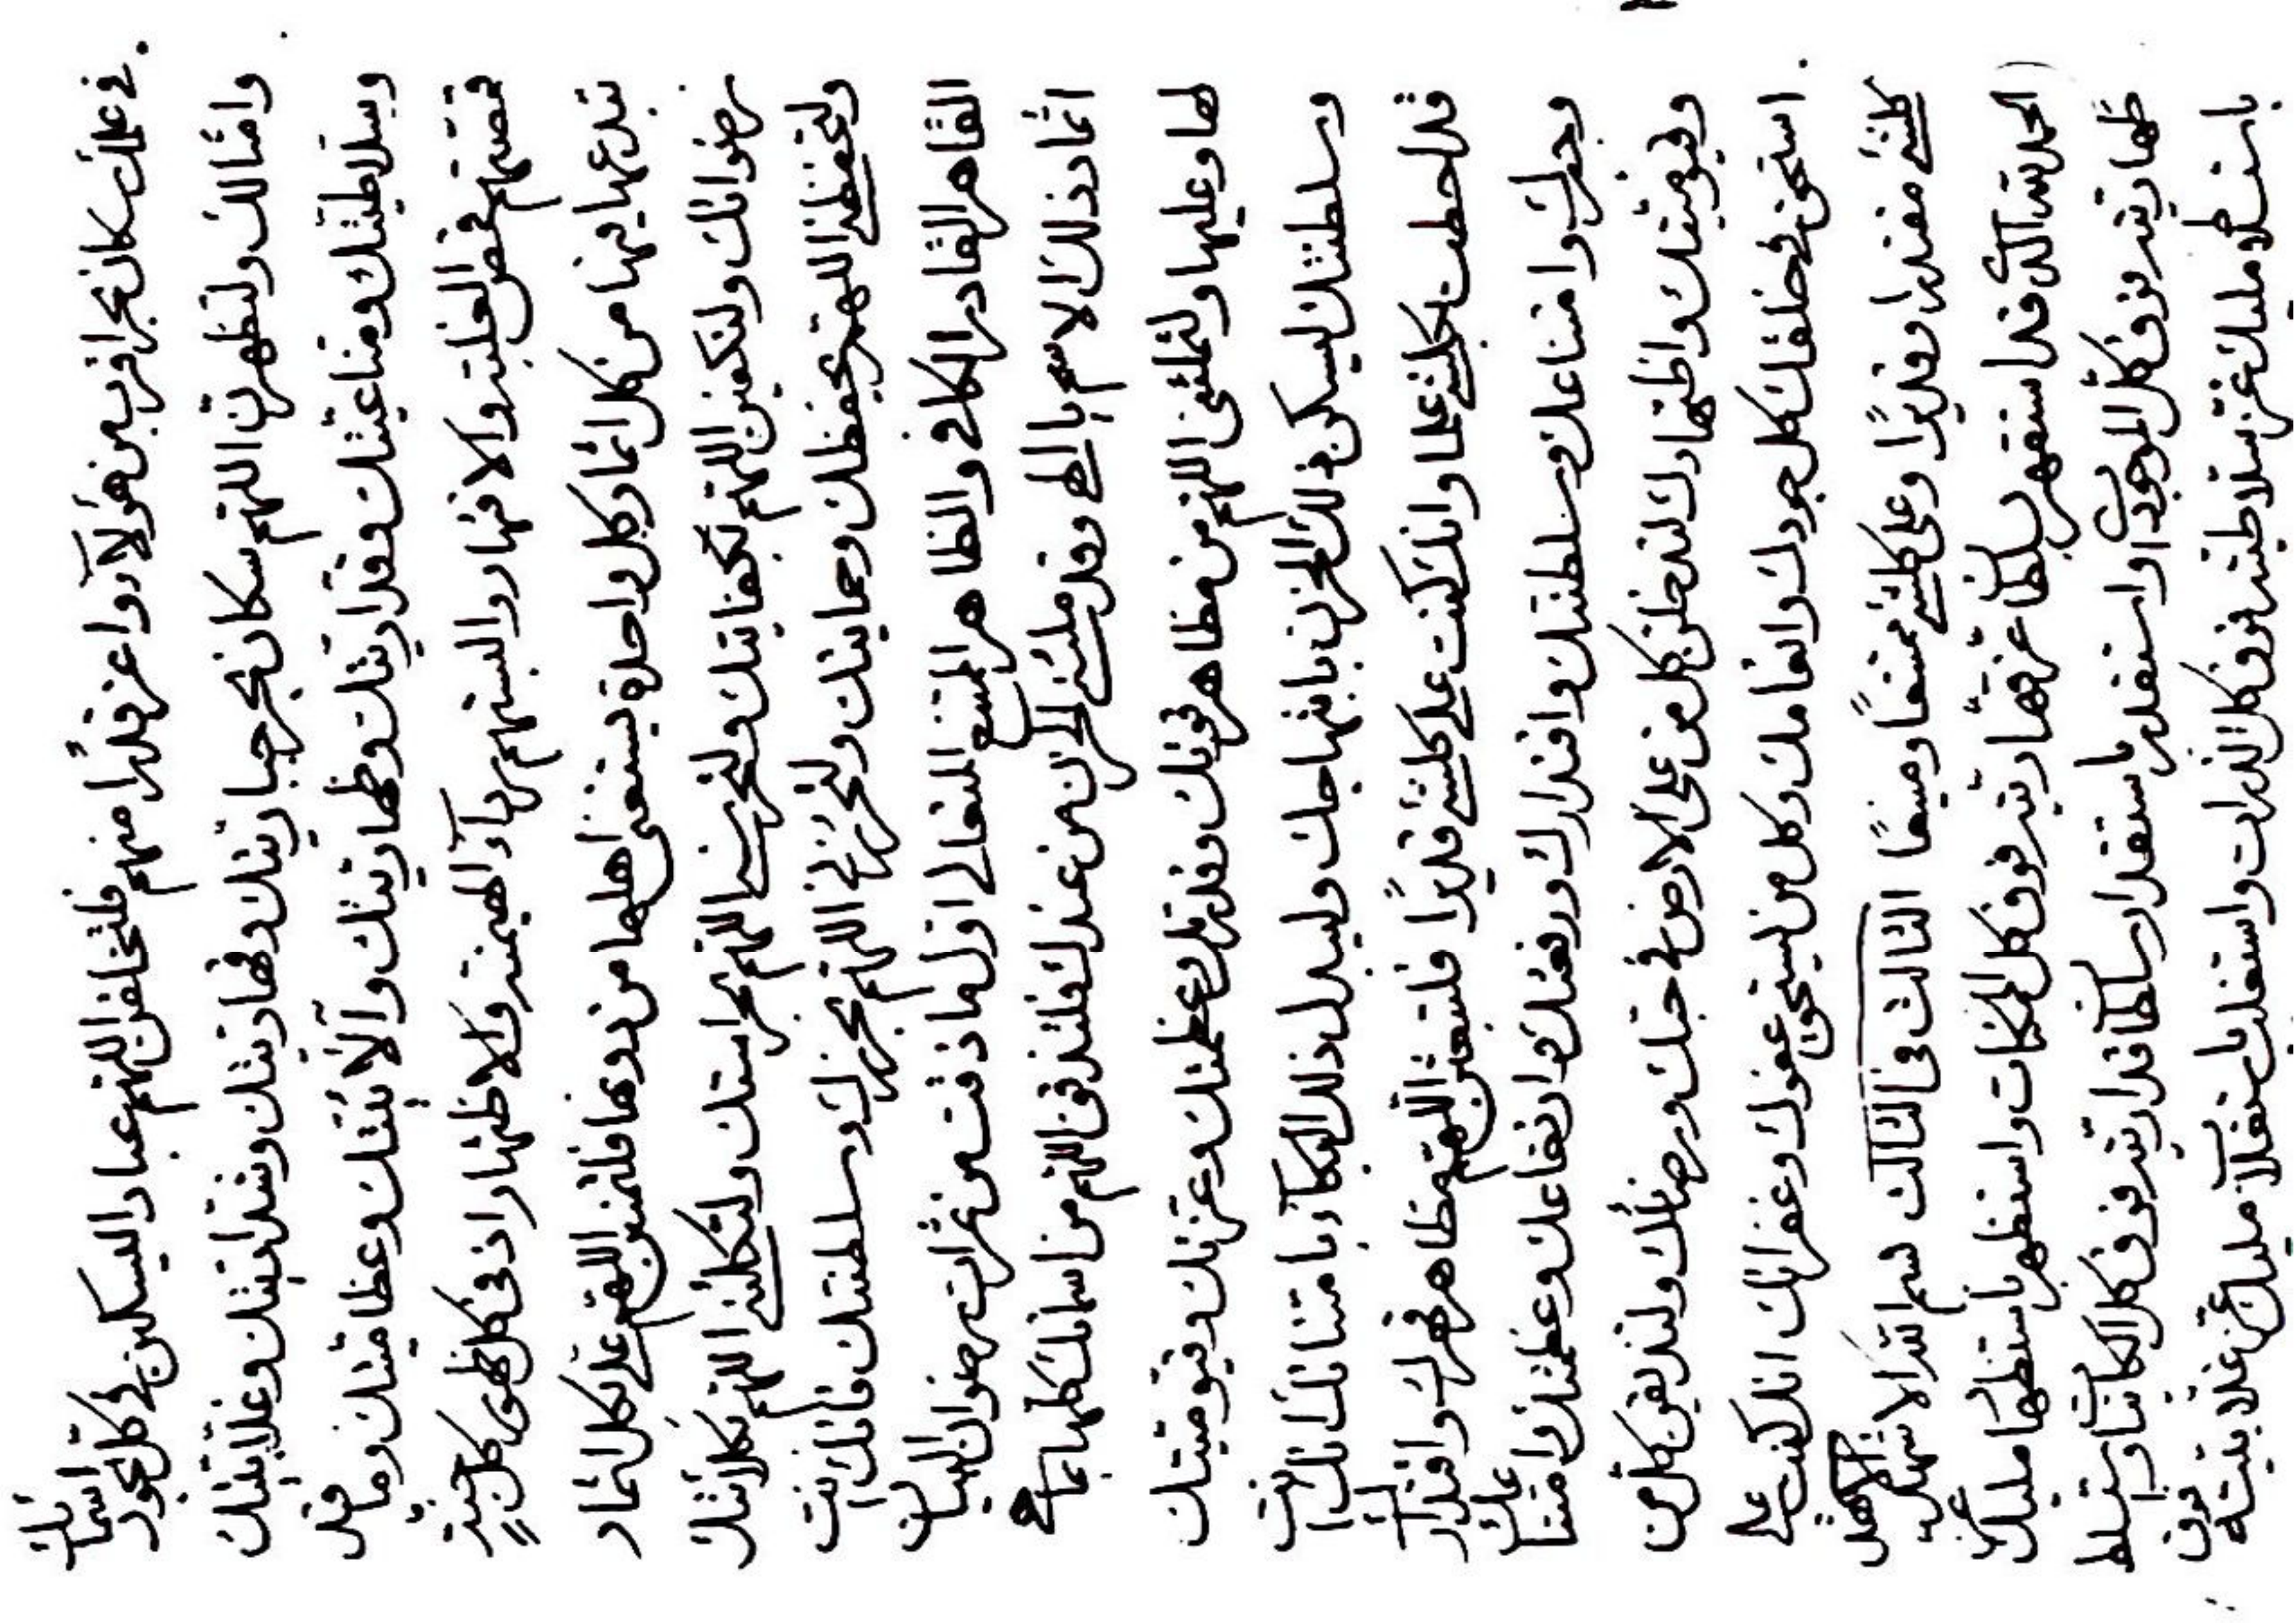 في علمك كان بحرا قرب من هؤلآء واعز قدرًا منهم فلتخلقن اللهم عبادا ليسكن في كل الجود اسمائك
وامثالك ولتظهرن اللهم سكان بحر جباريتك وقهاريتك وشداديتك وغلابيتك
وبسلاطيتك ومناعيتك وقداريتك وظهاريتك وآلائيتك وعظاميتك وما قد
قمصتهم قمص الغلبة والاقهار والبستهم رداء الهيمنة والاظهار اذ في كل ظهور كل جنة
تبدعها فيها من كل اثمار وكل واحدة يستغنى اهلها من دونها فلتمنن اللهم على بكل اثمار
رضوانك ولتكفين اللهم بكفايتك ولتحرسنى اللهم بحراستك ولتكلئنى اللهم بكلائتك
ولتحفظنى اللهم بحفظك وحمايتك ولتحرزنى اللهم بحرزك وسلطنتك فانك انت
القاهر القادر الكافى والظاهر الممتنع المتعالى اول ما ذقت من ثمرات رضوان البيان
اثمار ذلك الاسم يا الهى وقد ملئنى الحزن من عندك فلتذقن اللهم من اسمائك كلها بما فى
لها وعليها ولتملئنى اللهم من مظاهر قوتك وقدرتك وعظمتك وعزتك وقيوميتك
وسلطنتك ليسكن ذلك الحزن بابتهاجك وليبدل ذلك البكآء بامتنانك انك انت
قد احطت بكلشئ علما وانك كنت على كلشئ قديرًا فلتبعثن اللهم مظاهر قهرك واقتدارك
وجهرك وامتناعك وسلطنتك واقتدارك ورفعتك وارتفاعك وعظمتك وامتناعك
وقيوميتك واظتهارك لتدخلن كل من على الارض في حبك ورضائك ولتذيقن كل من
استحق في خلقك كل جودك وانعامك وكل من ليستحق عفوك وغفرانك انك كنت على
كلشئ مقتدرا وقديرًا وعلى كلشئ ممتنعًا ومنيعًا الثالث في الثالث بسم الله الاشهل الاشهل
الحمد لله الذى قد استقهر بسلطان عز قهاريته فوق كل الممكنات واستظهر باستظهار مليك
ظهاريته فوق كل الموجودات واستقدر باستقدار سلطان قداريته فوق كل الكائنات وتسلط
باستسلاط مليك عز سلاطيته فوق كل الذرات واستغلب باستغلاب مليك عز غلابيته فوق